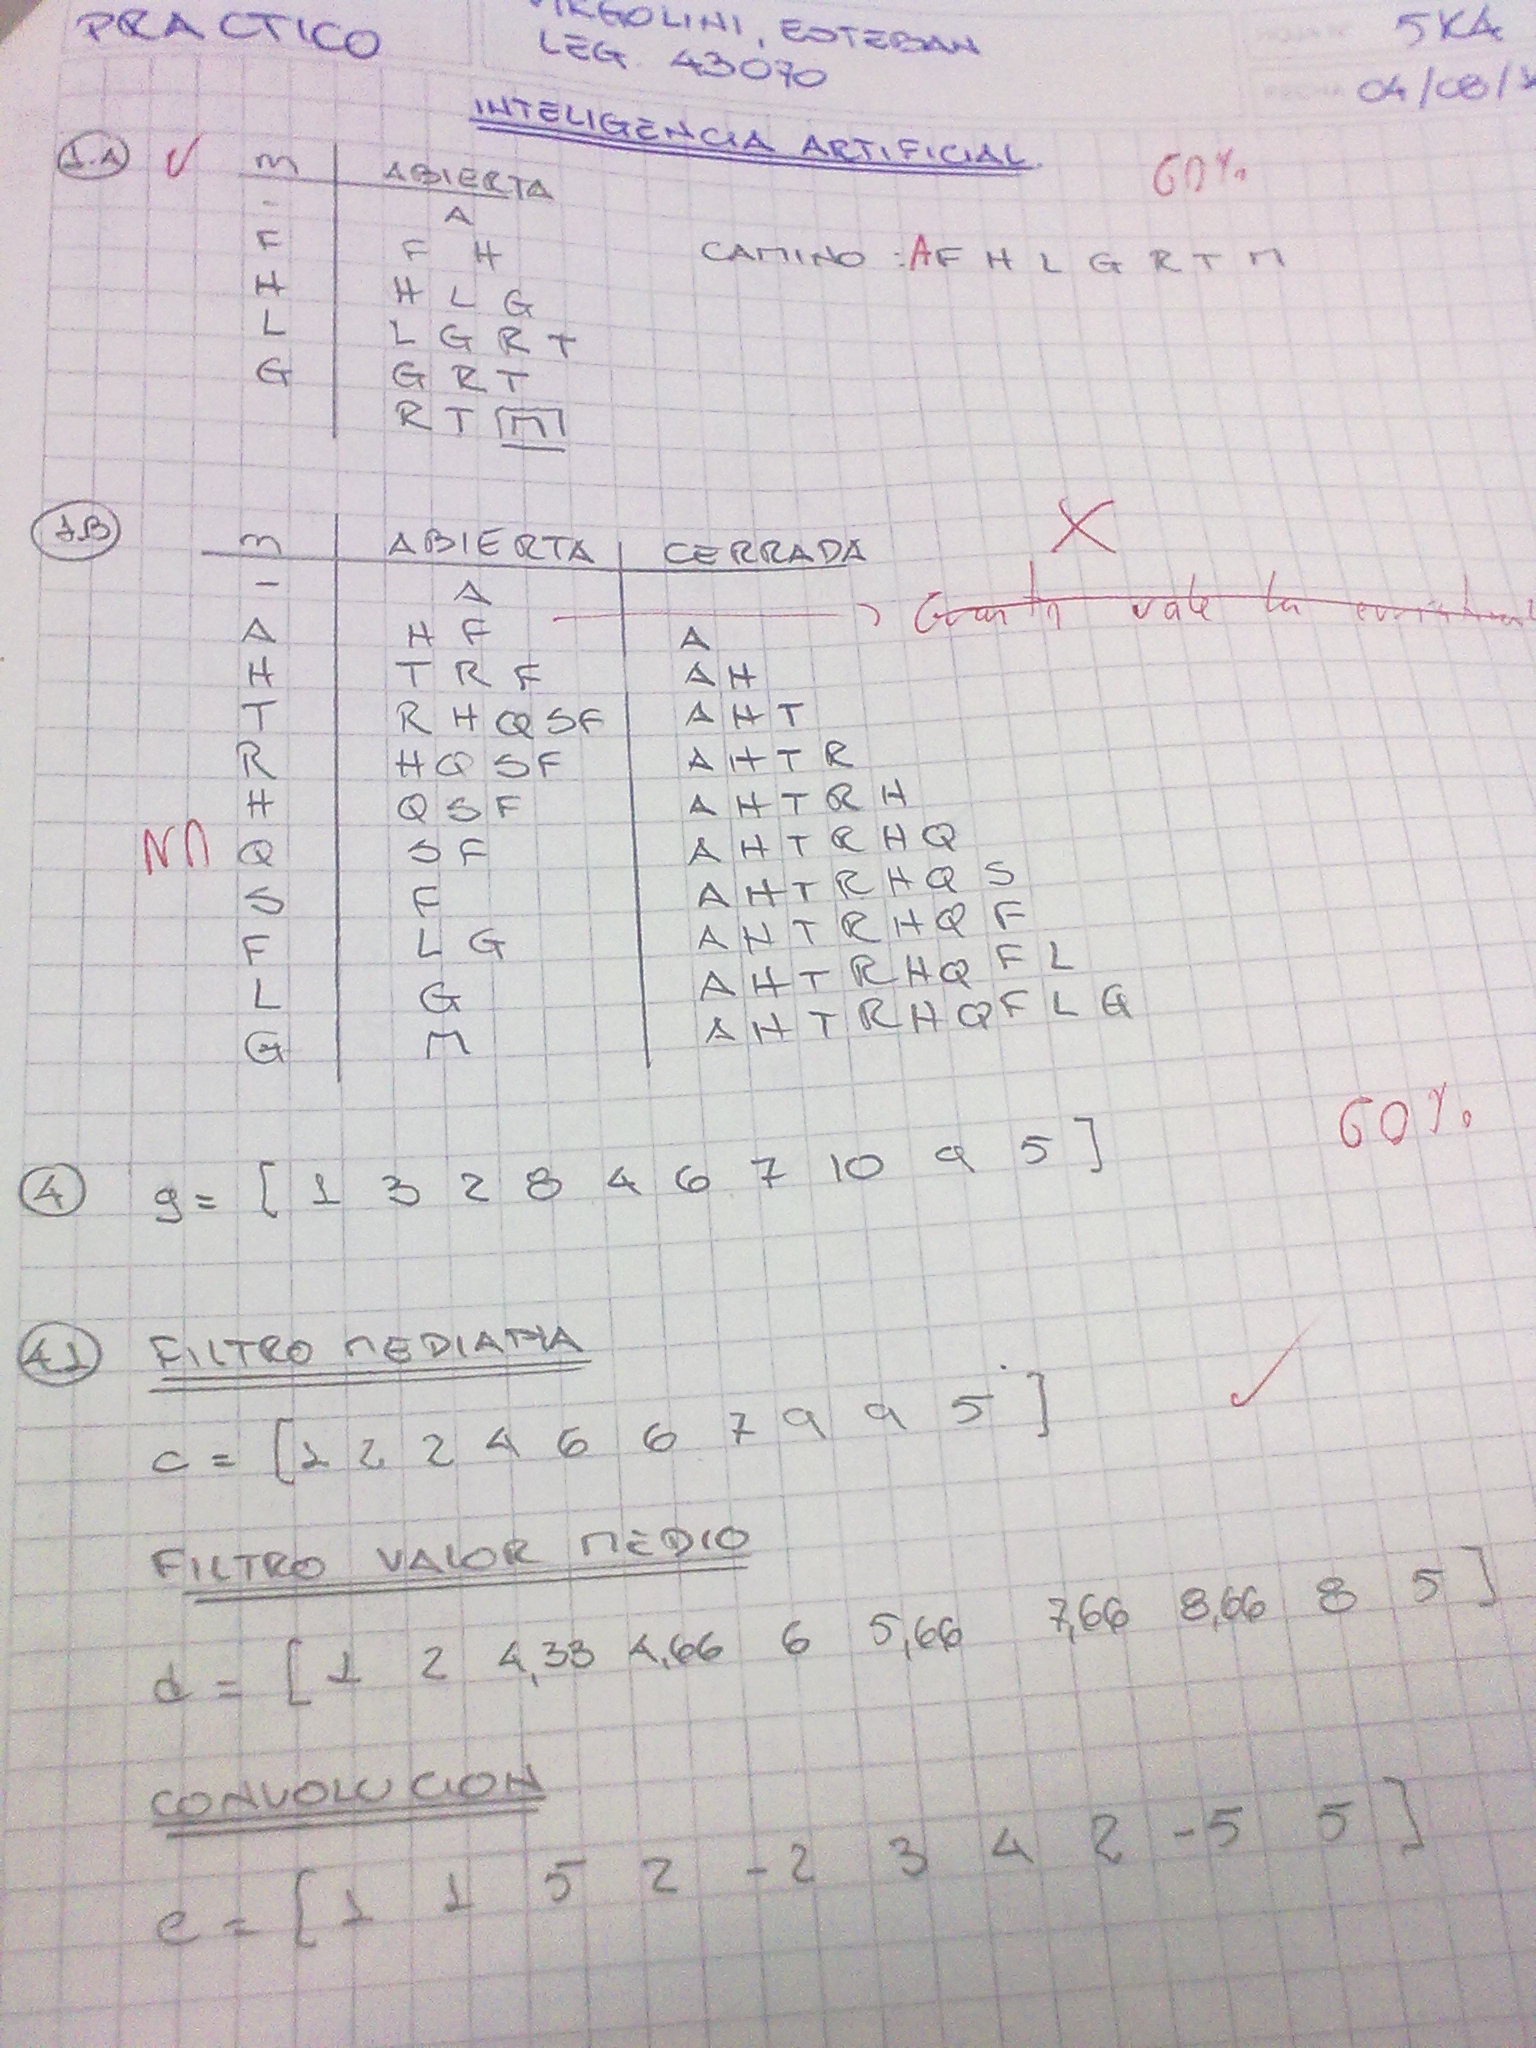 PRACTICO
VIRGOLINI, ESTEBAN 5K4
LEG. 43070 04/08/
INTELIGENCIA ARTIFICIAL.
1.A m ABIERTA 60%
- A
F F H CAMINO : A F H L G R T M
H H L G
L L G R T
G G R T
R T M
1B m ABIERTA CERRADA
- A
A H F A vale la
H T R F A H
T R H Q S F A H T
R H Q S F A H T R
H Q S F A H T R H
NO Q S F A H T R H Q
S F A H T R H Q S
F L G A H T R H Q F
L G A H T R H Q F L
G M A H T R H Q F L G
60%
4 g = [ 1 3 2 8 4 6 7 10 9 5 ]
4.1 FILTRO MEDIANA
c = [ 1 2 2 4 6 6 7 9 9 5 ]
FILTRO VALOR MEDIO
d = [ 1 2 4,33 4,66 6 5,66 7,66 8,66 8 5 ]
CONVOLUCION
e = [ 1 1 5 2 -2 3 4 2 -5 5 ]